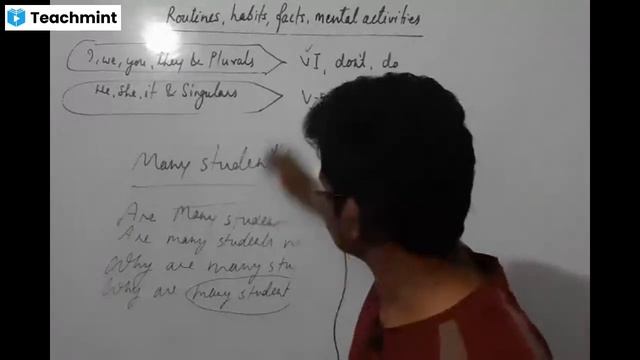 Teachmint
Routines, habits, facts, mental activities
I, we, you, they & Plurals VI, don't, do
He, she, it & Singulars
Many student
Are Many studen
Are many students
Why are many stu
Why are many student